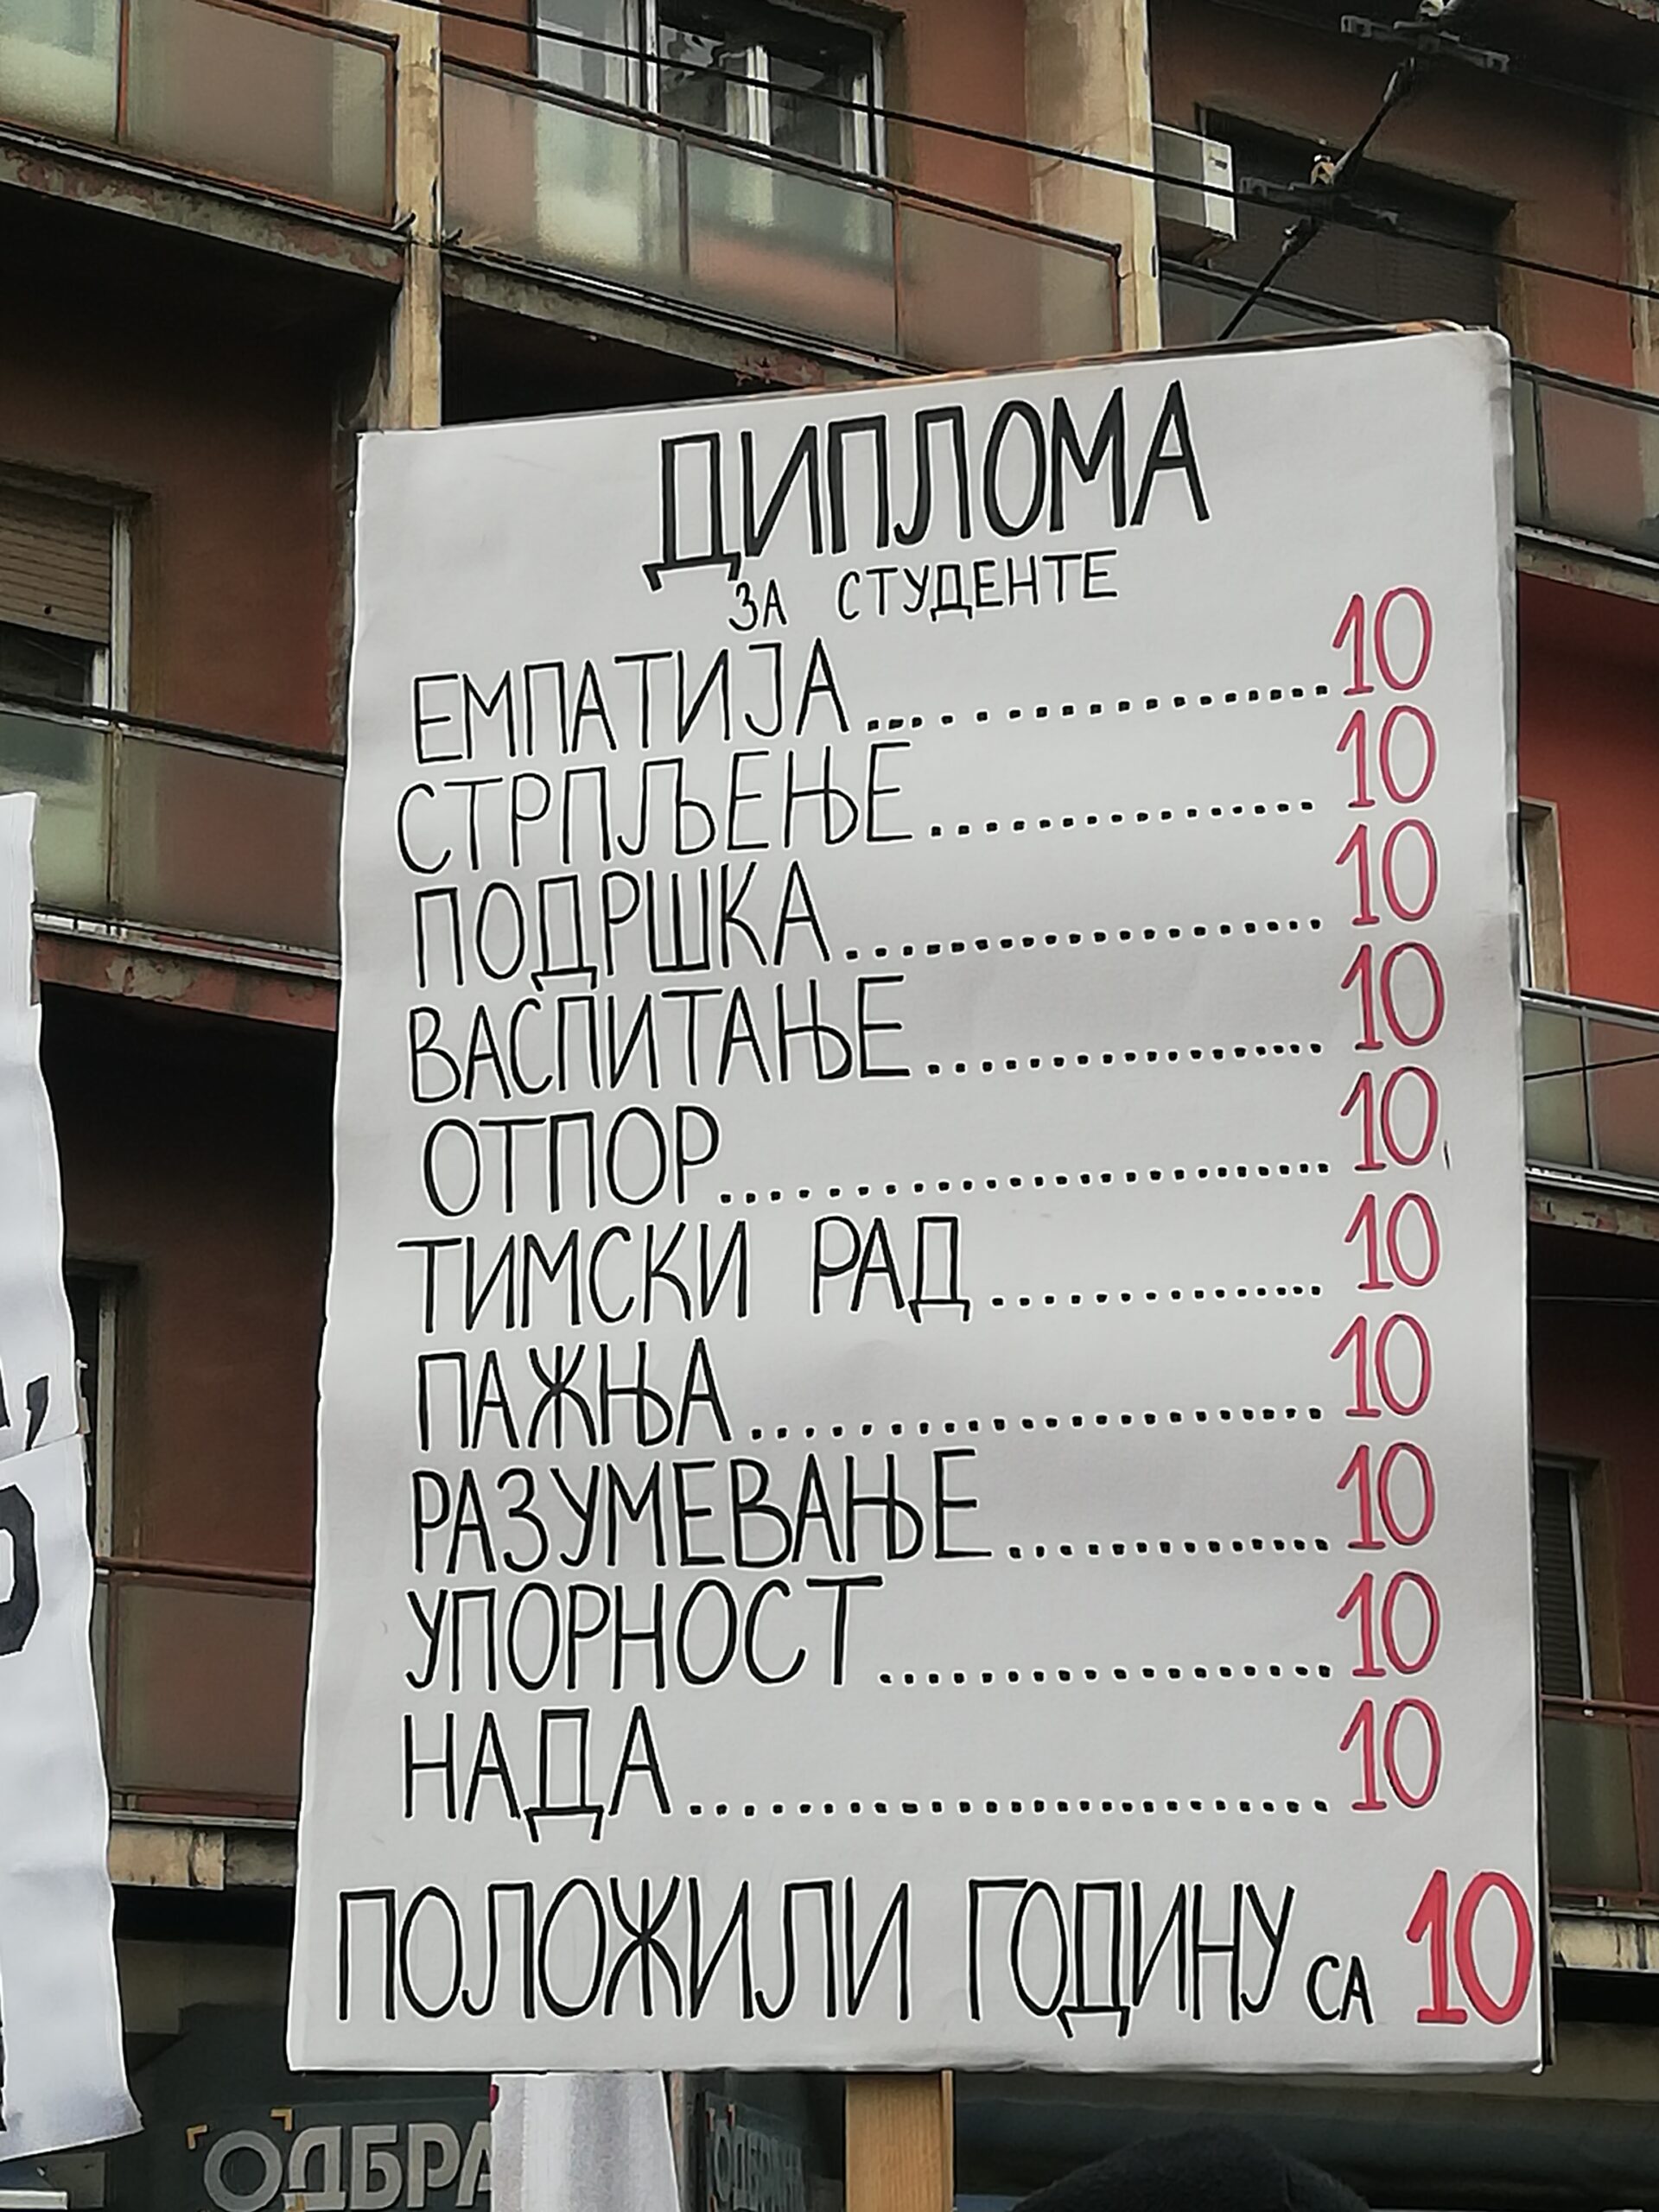 ДИПЛОМА
ЗА СТУДЕНТЕ
ЕМПАТИЈА.................10
СТРПЉЕЊЕ...............10
ПОДРШКА..................10
ВАСПИТАЊЕ...............10
ОТПОР.......................10
ТИМСКИ РАД.............10
ПАЖЊА.....................10
РАЗУМЕВАЊЕ............10
УПОРНОСТ.................10
НАДА........................10
ПОЛОЖИЛИ ГОДИНУ СА 10
ОДБРА